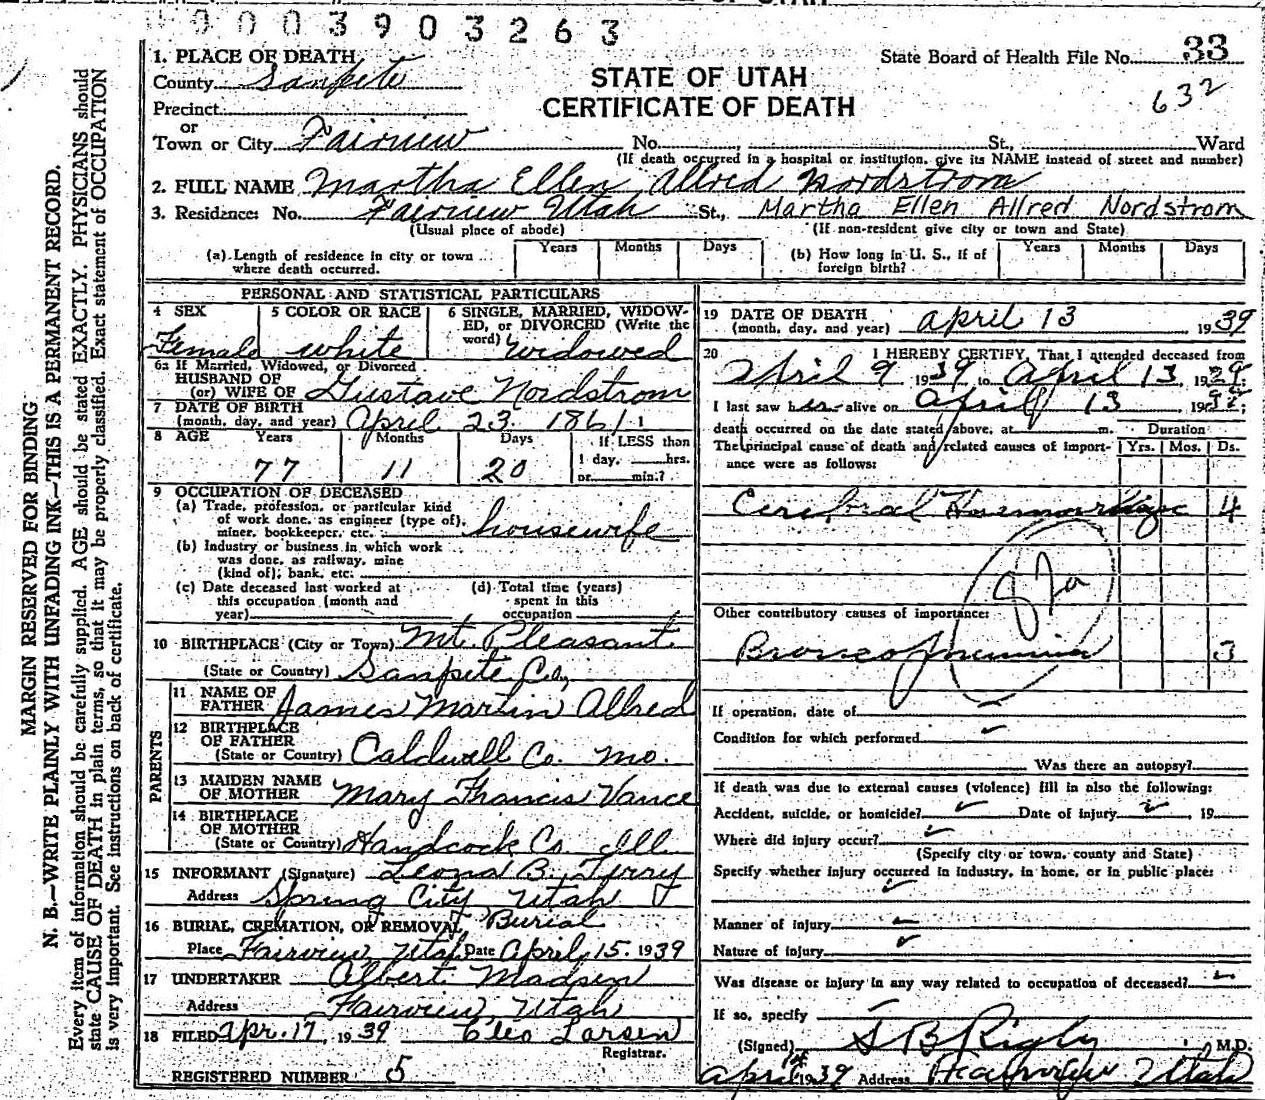 0003903263
1. PLACE OF DEATH
County Sanpete
Precinct
or
Town or City Fairview
State Board of Health File No. 33
632
STATE OF UTAH
CERTIFICATE OF DEATH
No. St., Ward
(If death occurred in a hospital or institution, give its NAME instead of street and number)
2. FULL NAME Martha Ellen Allred Nordstrom
3. Residence: No. Fairview Utah St., Martha Ellen Allred Nordstrom
(Usual place of abode) (If non-resident give city or town and State)
(a) Length of residence in city or town where death occurred. Years Months Days
(b) How long in U. S., if of foreign birth? Years Months Days
MARGIN RESERVED FOR BINDING
N. B.—WRITE PLAINLY WITH UNFADING INK—THIS IS A PERMANENT RECORD.
Every item of information should be carefully supplied. AGE should be stated EXACTLY. PHYSICIANS should
state CAUSE OF DEATH in plain terms, so that it may be properly classified. Exact statement of OCCUPATION
is very important. See instructions on back of certificate.
PERSONAL AND STATISTICAL PARTICULARS
4 SEX
Female
5 COLOR OR RACE
white
6 SINGLE, MARRIED, WIDOW-
ED, or DIVORCED (Write the
word) widowed
6a If Married, Widowed, or Divorced
HUSBAND OF
(or) WIFE OF Gustave Nordstrom
7 DATE OF BIRTH
(month, day, and year) April 23 1861
8 AGE Years Months Days If LESS than
1 day, hrs.
or min.?
77 11 20
9 OCCUPATION OF DECEASED
(a) Trade, profession, or particular kind
of work done, as engineer (type of),
miner, bookkeeper, etc. housewife
(b) Industry or business in which work
was done, as railway, mine
(kind of); bank, etc.
(c) Date deceased last worked at
this occupation (month and
year)
(d) Total time (years)
spent in this
occupation
10 BIRTHPLACE (City or Town) Mt. Pleasant
(State or Country) Sanpete Co.
PARENTS
11 NAME OF
FATHER James Martin Allred
12 BIRTHPLACE
OF FATHER
(State or Country) Caldwell Co. Mo.
13 MAIDEN NAME
OF MOTHER Mary Francis Vance
14 BIRTHPLACE
OF MOTHER
(State or Country) Handcock Co. Ill.
15 INFORMANT (Signature) Leona B. Terry
Address Spring City, Utah
16 BURIAL, CREMATION, OR REMOVAL Burial
Place Fairview Utah Date April 15. 1939
17 UNDERTAKER Albert Madsen
Address Fairview, Utah
18 FILED Apr. 17, 1939 Cleo Larsen
Registrar.
REGISTERED NUMBER 5
19 DATE OF DEATH
(month, day, and year) April 13 1939
20 I HEREBY CERTIFY, That I attended deceased from
April 9 1939 to April 13, 1939;
I last saw her alive on April 13 1939;
death occurred on the date stated above, at m. Duration
The principal cause of death and related causes of import- Yrs. Mos. Ds.
ance were as follows:
Cerebral Haemorrhage 4
82a
Other contributory causes of importance:
3
If operation, date of
Condition for which performed
Was there an autopsy?
If death was due to external causes (violence) fill in also the following:
Accident, suicide, or homicide? Date of injury , 19
Where did injury occur?
(Specify city or town, county and State)
Specify whether injury occurred in industry, in home, or in public place:
Manner of injury
Nature of injury
Was disease or injury in any way related to occupation of deceased?
If so, specify
(Signed) S B Rigby M.D.
April 1939 Address Fairview Utah